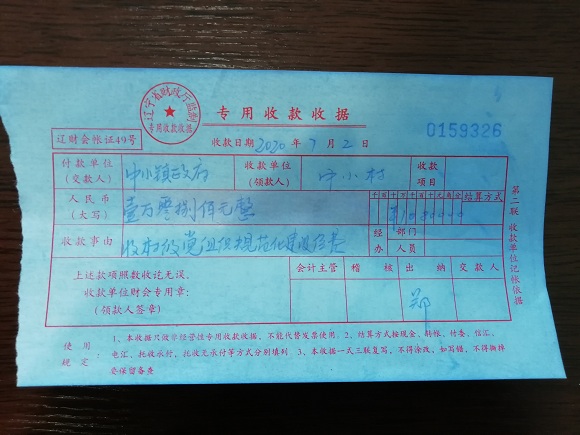 辽宁省财政厅监制
专用收款收据
专用收款收据
辽财会帐证49号
收款日期 2020年9月2日
0159326
付款单位
(交款人)
中小镇政府
收款单位
(领款人)
中小村
收款
项目
人民币
(大写)
壹万零捌佰元整
千百十万千百十元角分
¥1080000
结算方式
收款事由
收市级党组织规范化建设经费
经 部门
办 人员
上述款项照数收讫无误。
收款单位财会专用章:
(领款人签章)
会计主管
稽 核
出 纳
交 款 人
郑
第二联 收款单位记帐依据
使用规定
1、本收据只做非经营性专用收款收据,不能代替发票使用。2、结算方式按现金、转帐、付委、信汇、
电汇、托收承付、托收无承付等方式分别填列 3、本收据一式三联复写,不得涂改,如写错,不得撕掉
要保留备查